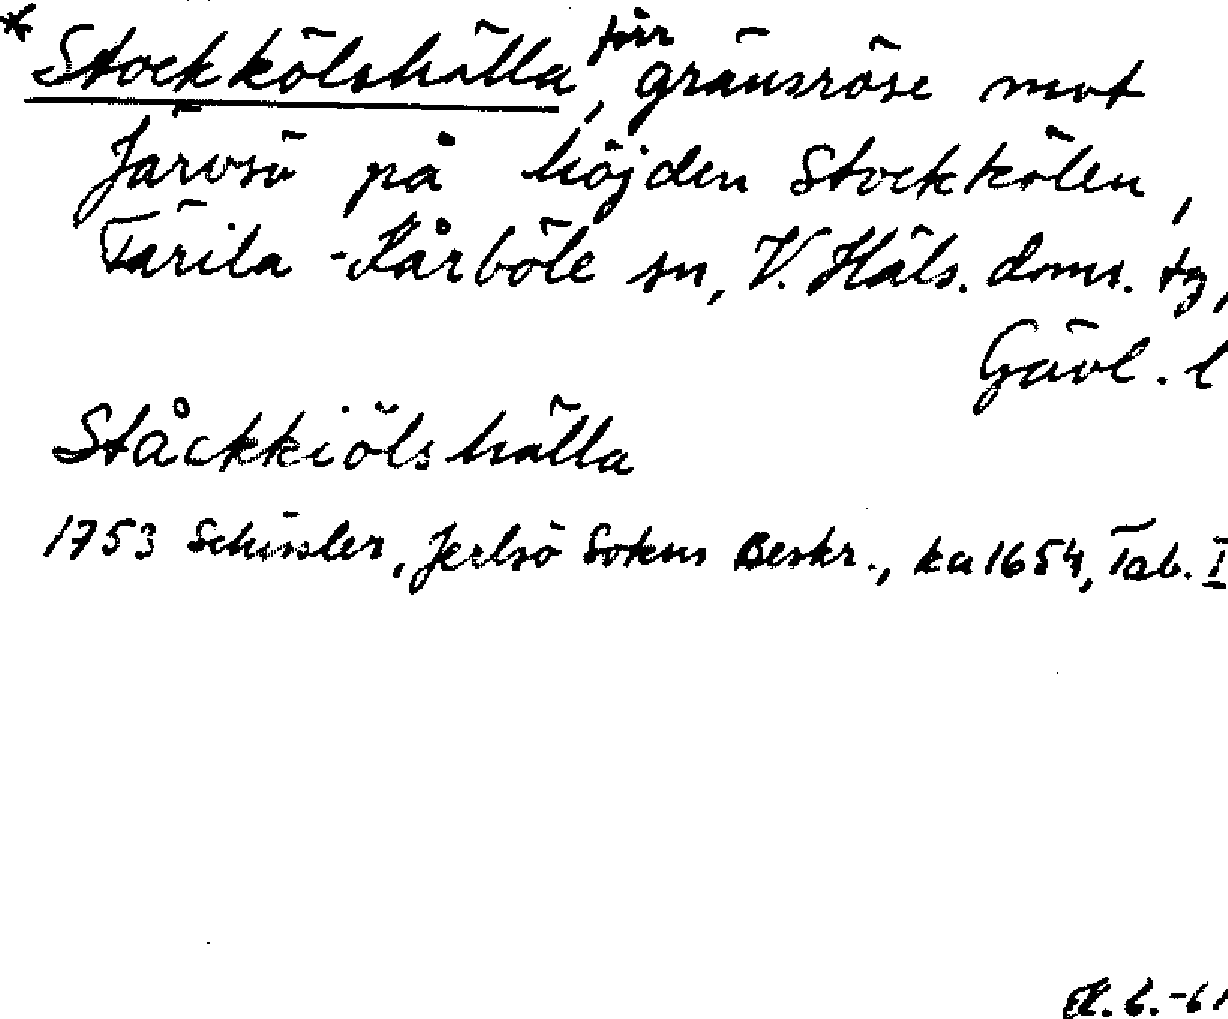 * Stockkölshälla, förr gränsröse mot
Järvsö på höjden Stockkölen,
Färila-Kårböle sn, V. Häls. doms. tg,
Gävl. l
Ståckkiölshälla
1753 Schissler, Jerlsö Sokns Beskr., ka 1654, Tab. I